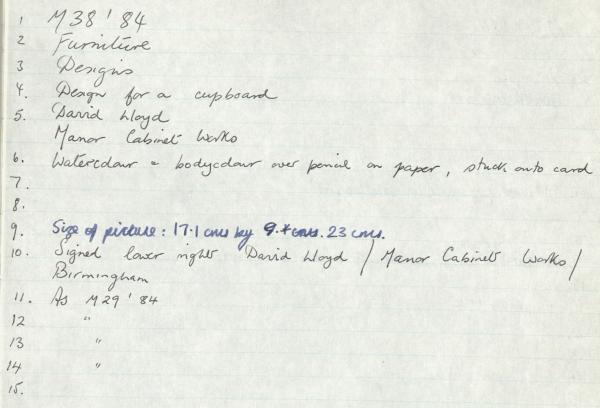 1 M38'84
2 Furniture
3 Designs
4. Design for a cupboard
5. David Lloyd
Manor Cabinet Works
6. Watercolour & bodycolour over pencil on paper, stuck onto card
7.
8.
9. Size of picture: 17.1 cms by 23 cms.
10. Signed lower right David Lloyd / Manor Cabinet Works /
Birmingham
11. As M29'84
12 "
13 "
14 "
15.